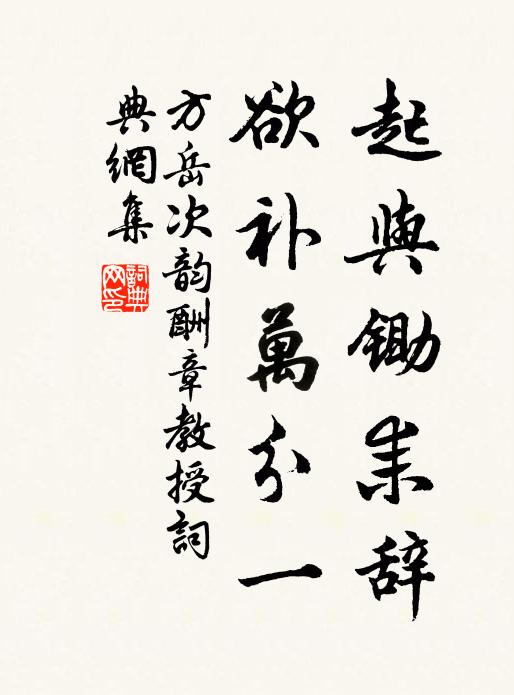 起與锄耒辞
欲补萬分一
方岳次韵酬章教授詞
典網集
詞典網印